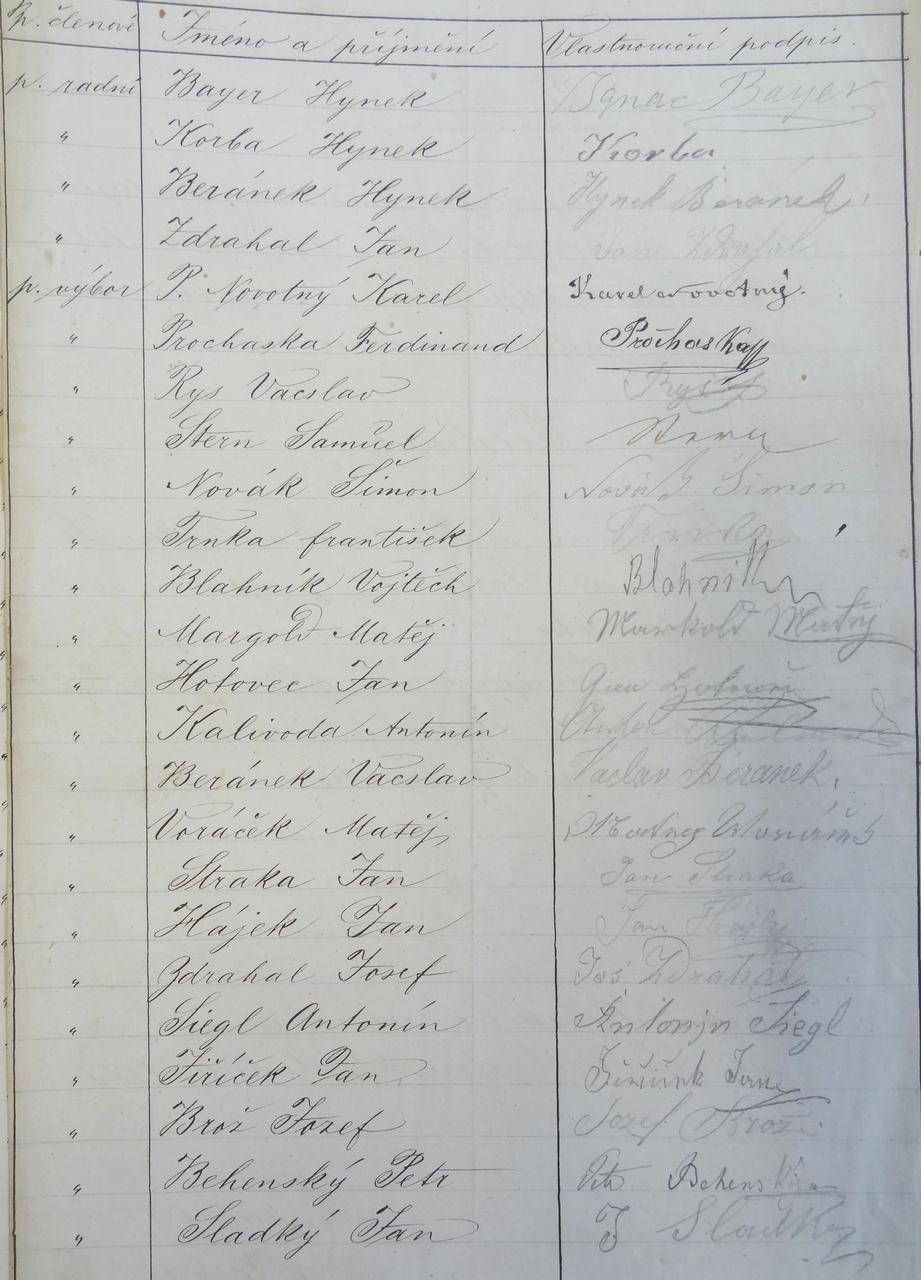 P. členové Jméno a příjmění Vlastnoruční podpis.
p. radní Bayer Hynek Ignac Bayer
" Korba Hynek Korba
" Beránek Hynek Hynek Beránek
" Zdrahal Jan Jan Zdrahal
p. výbor P. Novotný Karel Karel Novotný.
" Prochaska Ferdinand Prochaska
" Rys Vácslav Rys
" Stern Samuel Stern
" Novák Šimon Novák Šimon
" Trnka františek Trnka
" Blahník Vojtěch Blahnik
" Margold Matěj Markold Matěj
" Hotovec Jan
" Kalivoda Antonín
" Beránek Vácslav Vaclav Beranek.
" Voráček Matěj
" Straka Jan Jan Straka
" Hájek Jan Jan
" Zdrahal Josef Jos. Zdrahal
" Siegl Antonín Antonjn Siegl
" Jiříček Jan
" Brož Josef Jozef Brož
" Behenský Petr Petr Behenský
" Sladký Jan J Sladky